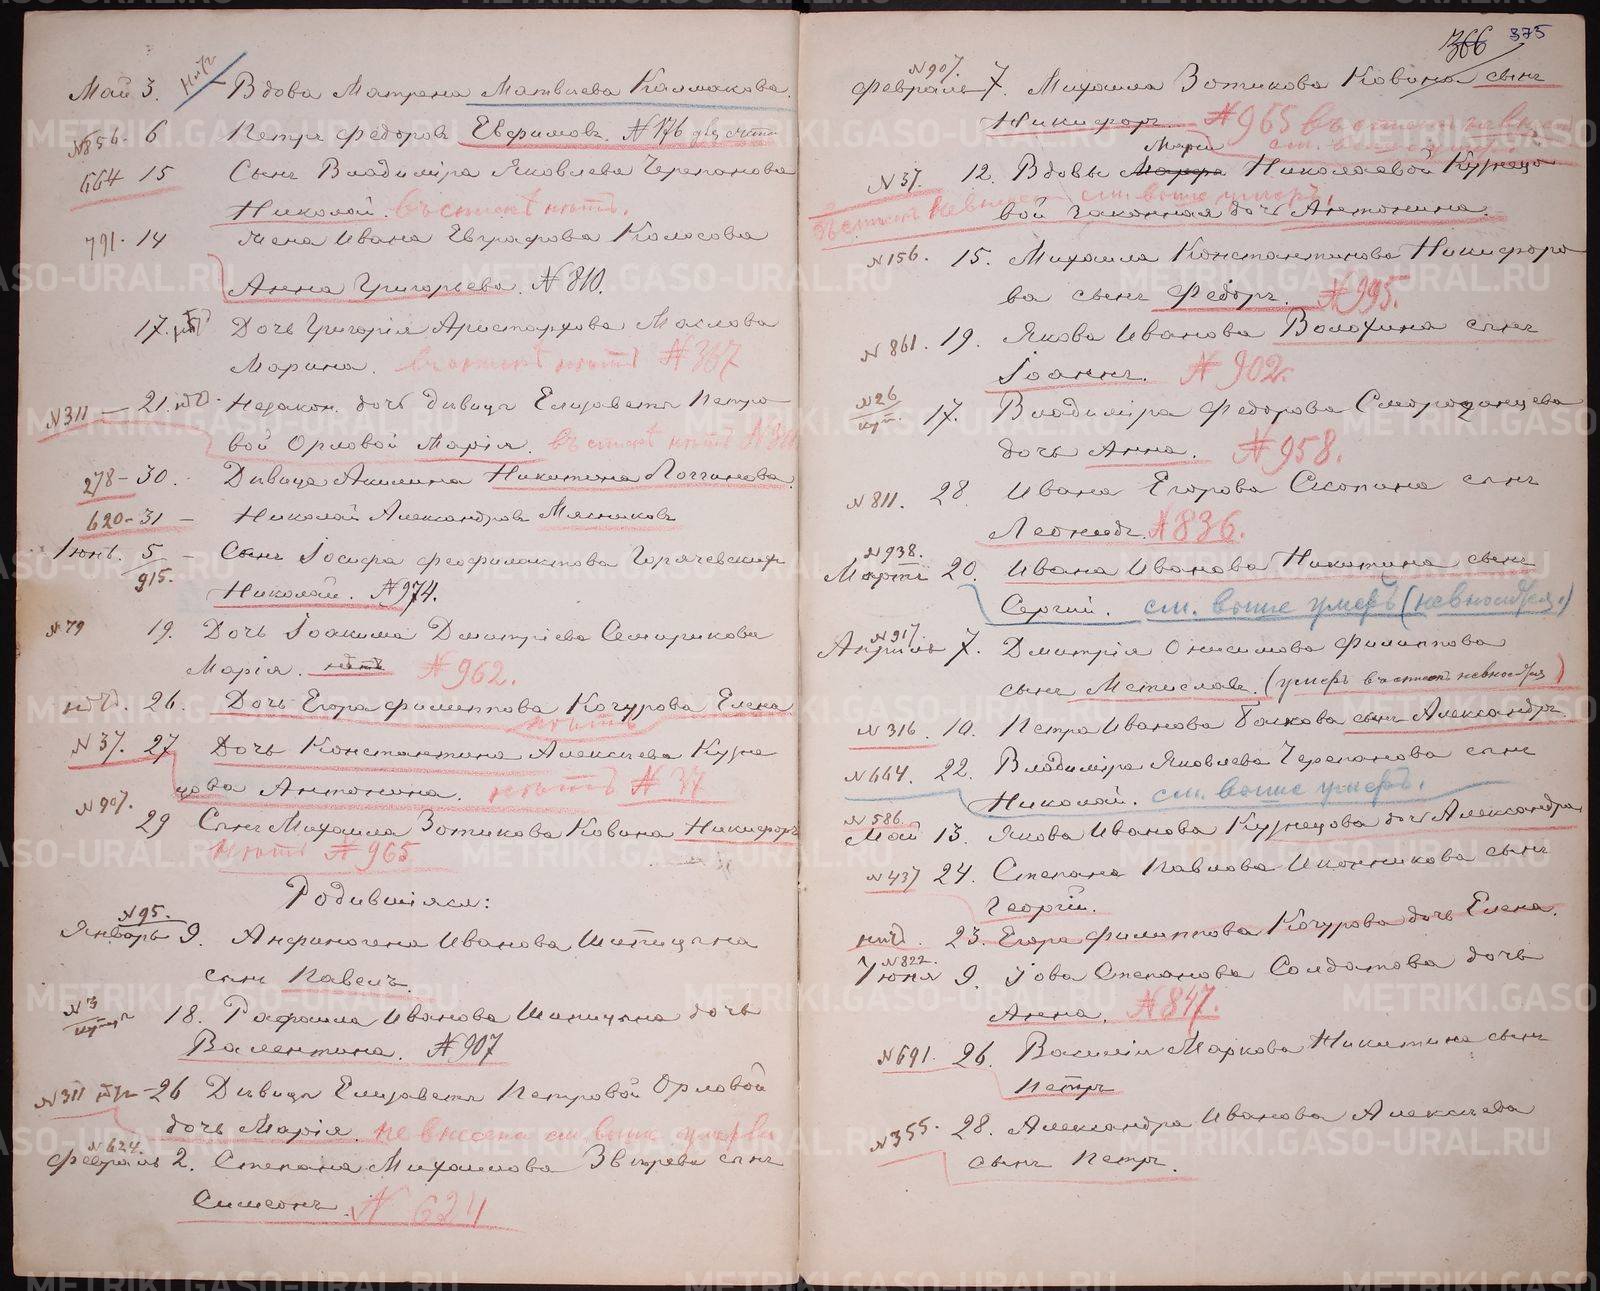 Май 3. Вдова Матрена Матвиева Калмакова.
№856. 6 Петръ Федоровъ Евфимовъ. №176
664 15 Сынъ Владиміра Яковлева Черепанова
Николай. въ спискѣ нѣтъ.
791. 14 Жена Ивана Евграфова Колосова
Анна Григорьева. №810.
17. нѣтъ Дочь Григорія Аристархова Маслова
Марина. въ спискѣ нѣтъ №387
№311 — 21. Незакон. дочь дивицы Елизаветы Петро
вой Орловой Марія. въ спискѣ нѣтъ №311
278 – 30. Дивица Акилина Никитина Логгинова.
620 – 31 – Николай Александровъ Мясниковъ
Іюнь. 5 – Сынъ Іосифа Феофилактова Горячевскихъ
915.
Николай. №974.
№79 19. Дочь Іоакима Дмитріева Семирикова
Марія. нѣтъ №962.
26. Дочь Егора Филиппова Качурова Елена
нѣтъ
№37. 27 Дочь Константина Алексиева Кузне
цова Антонина. нѣтъ №37
№907.
29 Сынъ Михаила Зотикова Ковина Никифоръ
нѣтъ №965
Родившіяся:
№95.
Январь 9. Анфиногена Ивановa Шипицына
сынъ Павелъ.
№3 18. Рафаила Иванова Шипицына дочь
Валентина. №907
№311 26 Дивицы Елизаветы Петровой Орловой
дочь Марія. не внесена см. выше умерши
№624.
Февраль 2. Степана Михаилова Звирева сынъ
Симеонъ. №624
366 375
№907.
Февраль 7. Михаила Зотикова Ковина сынъ
Никифоръ. №965 въ спискѣ не внесенъ
Маріи см. выше
№37. 12. Вдовы Марфы Николаевой Кузнецо
см. выше умеръ.
вой законная дочь Антонина.
№156. 15. Михаила Константинова Никифоро
ва сынъ Федоръ. №995.
№861. 19. Якова Иванова Волохина сынъ
Іоаннъ. №902.
№26 17. Владиміра Федорова Смородинцева
дочь Анна. №958.
№811. 28 Ивана Егорова Скопина сынъ
Леонидъ. №836.
№938.
Мартъ 20. Ивана Иванова Никитина сынъ
Сергий. см. выше умеръ (не вносится.)
№917.
Апрѣль 7. Дмитрія Онисимова Филиппова
сынъ Мстиславъ. (умеръ въ списокъ не вносится)
№316. 10. Петра Иванова Балкова сынъ Александръ.
№664. 22. Владиміра Яковлева Черепанова сынъ
Николай. см. выше умеръ.
№586.
Май 13. Якова Иванова Кузнецова дочь Александра
№437 24. Степана Павлова Иконникова сынъ
Георгій.
23. Егора Филиппова Качурова дочь Елена.
№822.
Іюня 9. Іова Степанова Солдатова дочь
Анна. №847.
№691. 26. Василія Маркова Никитина сынъ
Петръ
№355. 28. Александра Иванова Алексиева
сынъ Петръ.